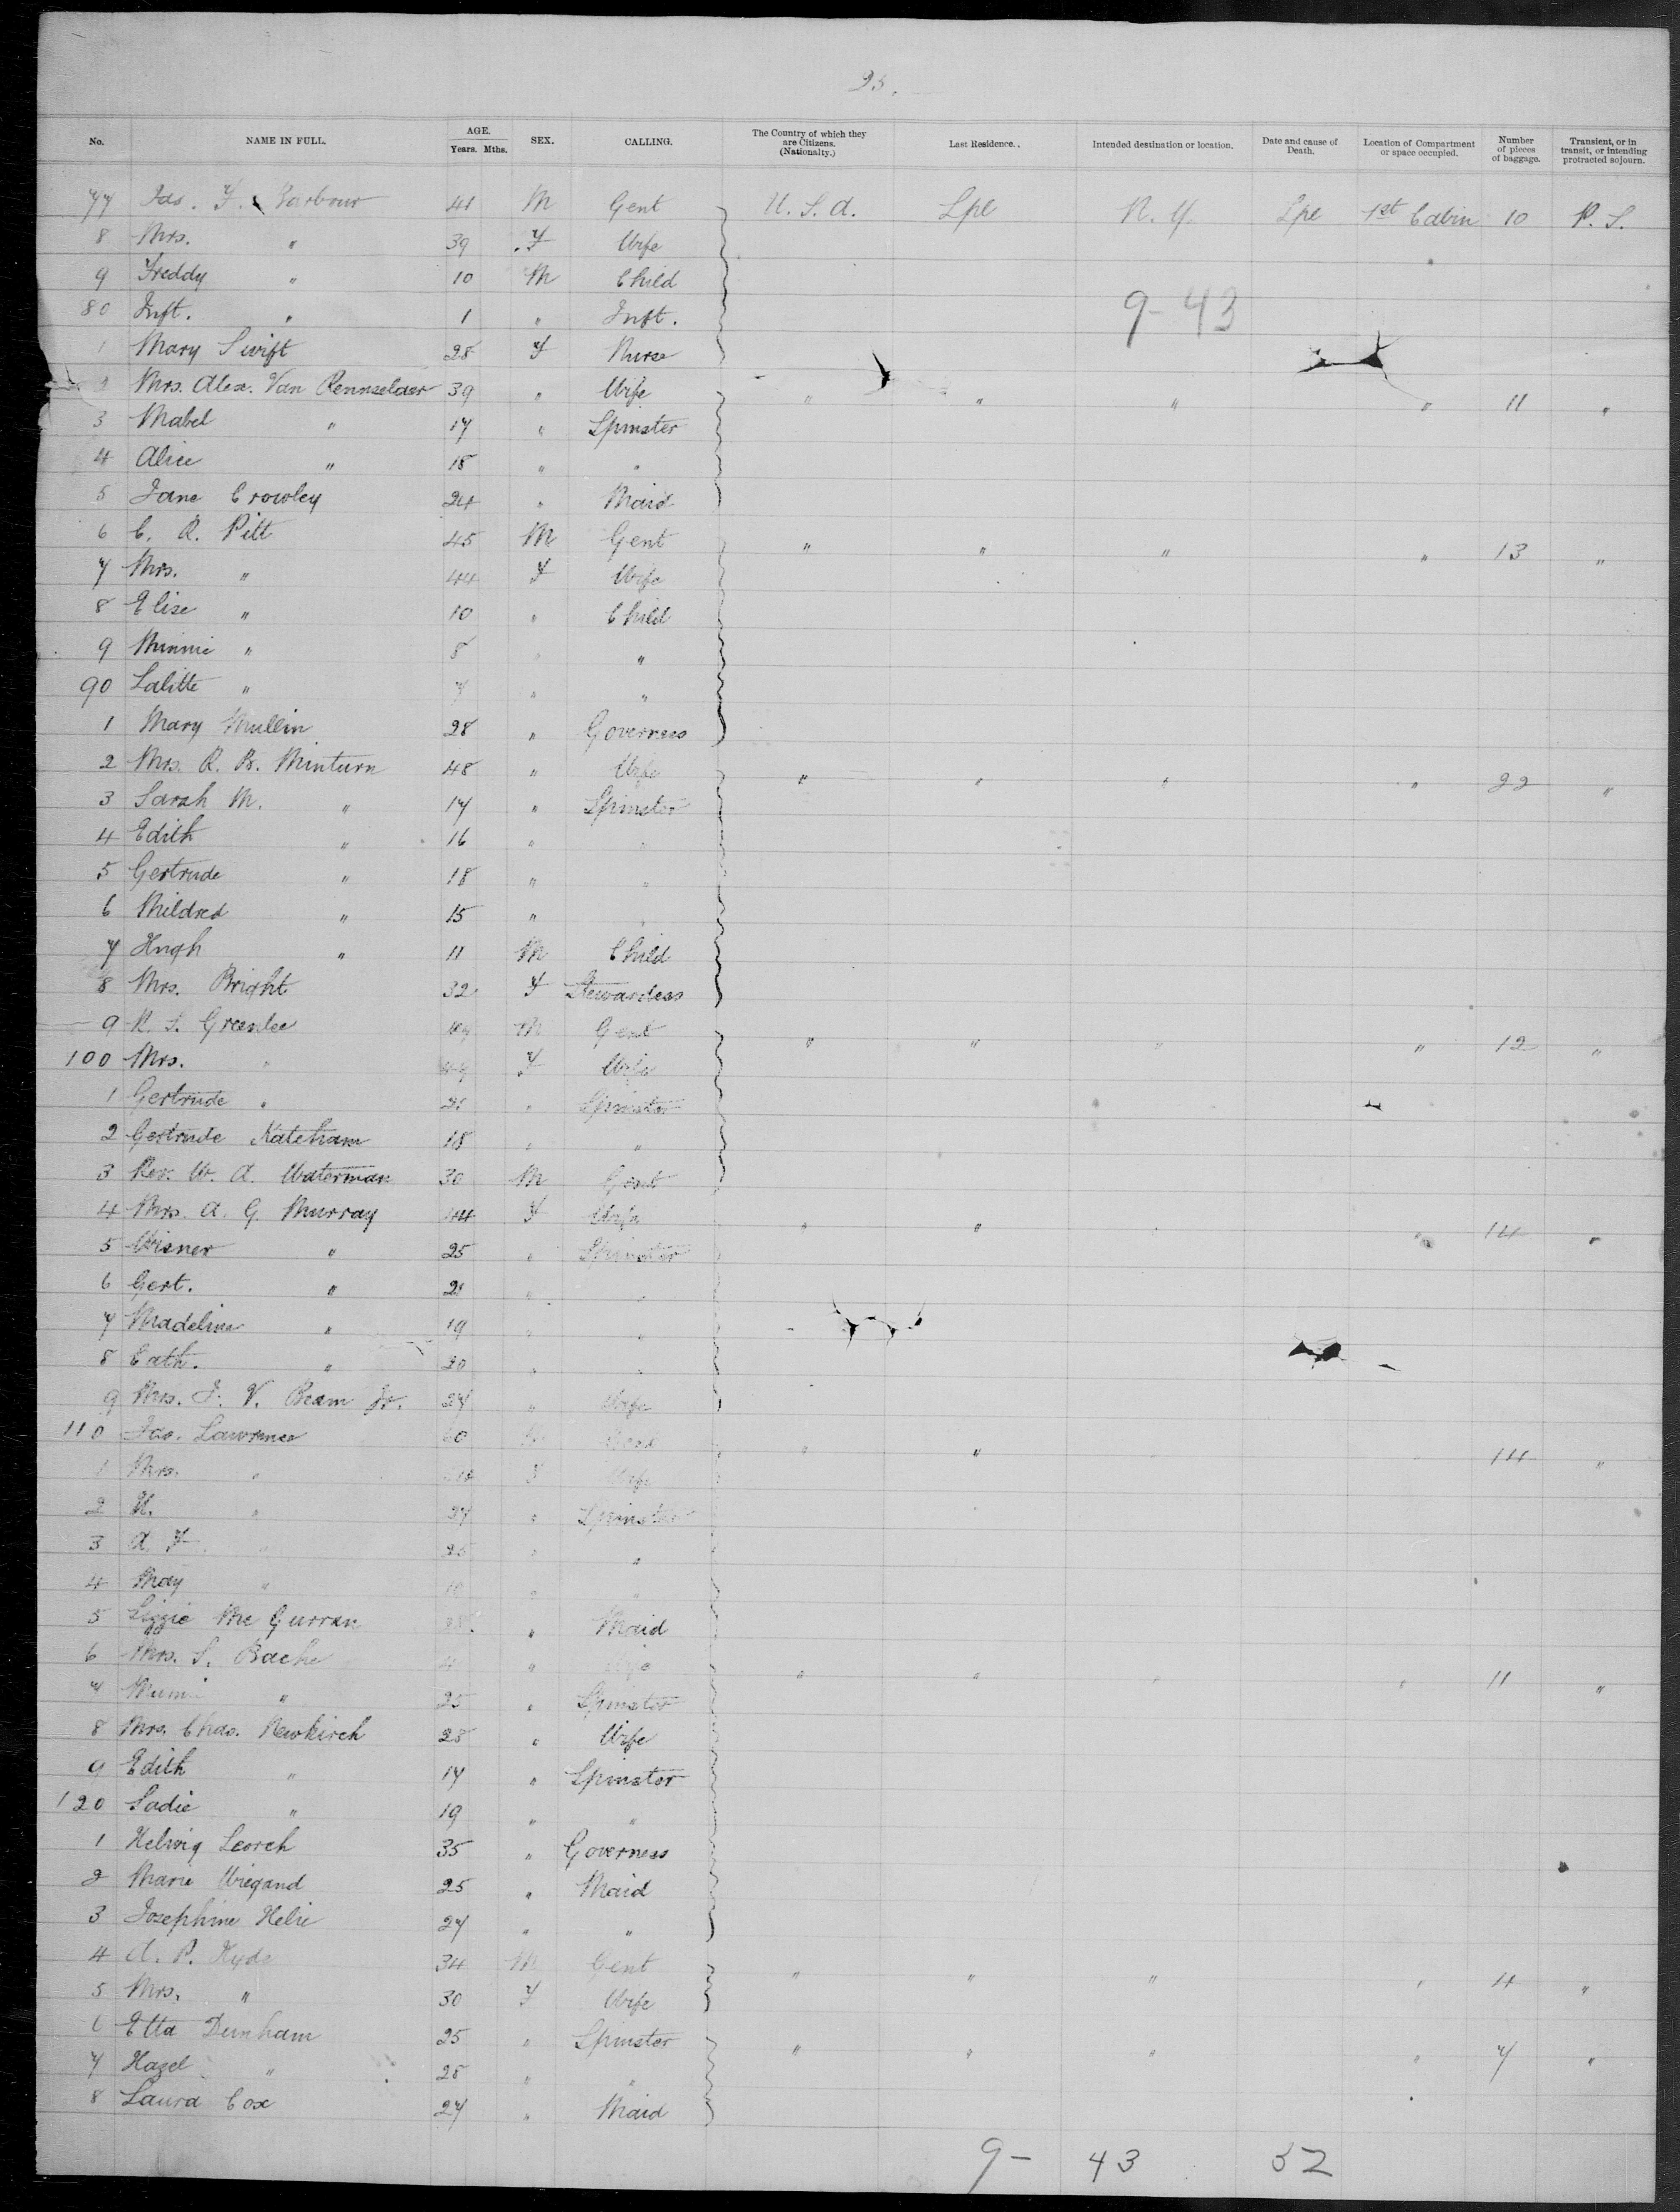 23.
No. NAME IN FULL. AGE. Years. Mths. SEX. CALLING. The Country of which they are Citizens. (Nationalty.) Last Residence.. Intended destination or location. Date and cause of Death. Location of Compartment or space occupied. Number of pieces of baggage. Transient, or in transit, or intending protracted sojourn.
77 Jas. F. Barbour 41 M Gent U.S.A. Lpl N.Y. Lpl 1st Cabin 10 P.S.
8 Mrs. " 39 F Wife
9 Freddy " 10 M Child
80 Inft. " 1 " Inft. 9-43
1 Mary Swift 28 F Nurse
Mrs. Alex. Van Rennselaer 39 " Wife " " " " 11 "
3 Mabel " 17 " Spinster
4 Alice " 18 " "
5 Jane Crowley 24 " Maid
6 C. R. Pitt 45 M Gent " " " " 13 "
7 Mrs. " 44 F Wife
8 Elise " 10 " Child
9 Minnie " 8 " "
90 Lalitte " 7 " "
1 Mary Mullin 28 " Governess
2 Mrs. R. B. Minturn 48 " Wife " " " " 22 "
3 Sarah M. " 17 " Spinster
4 Edith " 16 " "
5 Gertrude " 18 " "
6 Mildred " 15 " "
7 Hugh " 11 M Child
8 Mrs. Bright 32 F Stewardess
9 R. S. Greenlee M Gent " " " " 12 "
100 Mrs. " F Wife
1 Gertrude " 21 " Spinster
2 Gertrude Kateham 18 " "
3 Rev. W. A. Waterman 30 M Gent
4 Mrs. A. G. Murray 44 F Wife " " " 14 "
5 Wisner " 25 " Spinster
6 Gert. " 21 " "
7 Madeline " 19 " "
8 Cath. " 20 " "
9 Mrs. J. V. Beam Jr. 27 " Wife
110 Jas. Lawrence M Gent " " 14 "
1 Mrs. " F Wife
2 H. " 27 " Spinster
3 A. F. " 25 " "
4 May " " "
5 Lizzie Mc Gurran " Maid
6 Mrs. S. Bache " Wife " " " " 11 "
7 " 25 " Spinster
8 Mrs. Chas. Newkirch 28 " Wife
9 Edith " 17 " Spinster
120 Sadie " 19 " "
1 Helwig Leorch 35 " Governess
2 Marie Wiegand 25 " Maid
3 Josephine Helie 27 " "
4 A. P. Hyde 34 M Gent " " " " 4 "
5 Mrs. " 30 F Wife
6 Etta Dunham 25 " Spinster " " " " 7 "
7 Hazel " 28 " "
8 Laura Cox 27 " Maid
9- 43 52